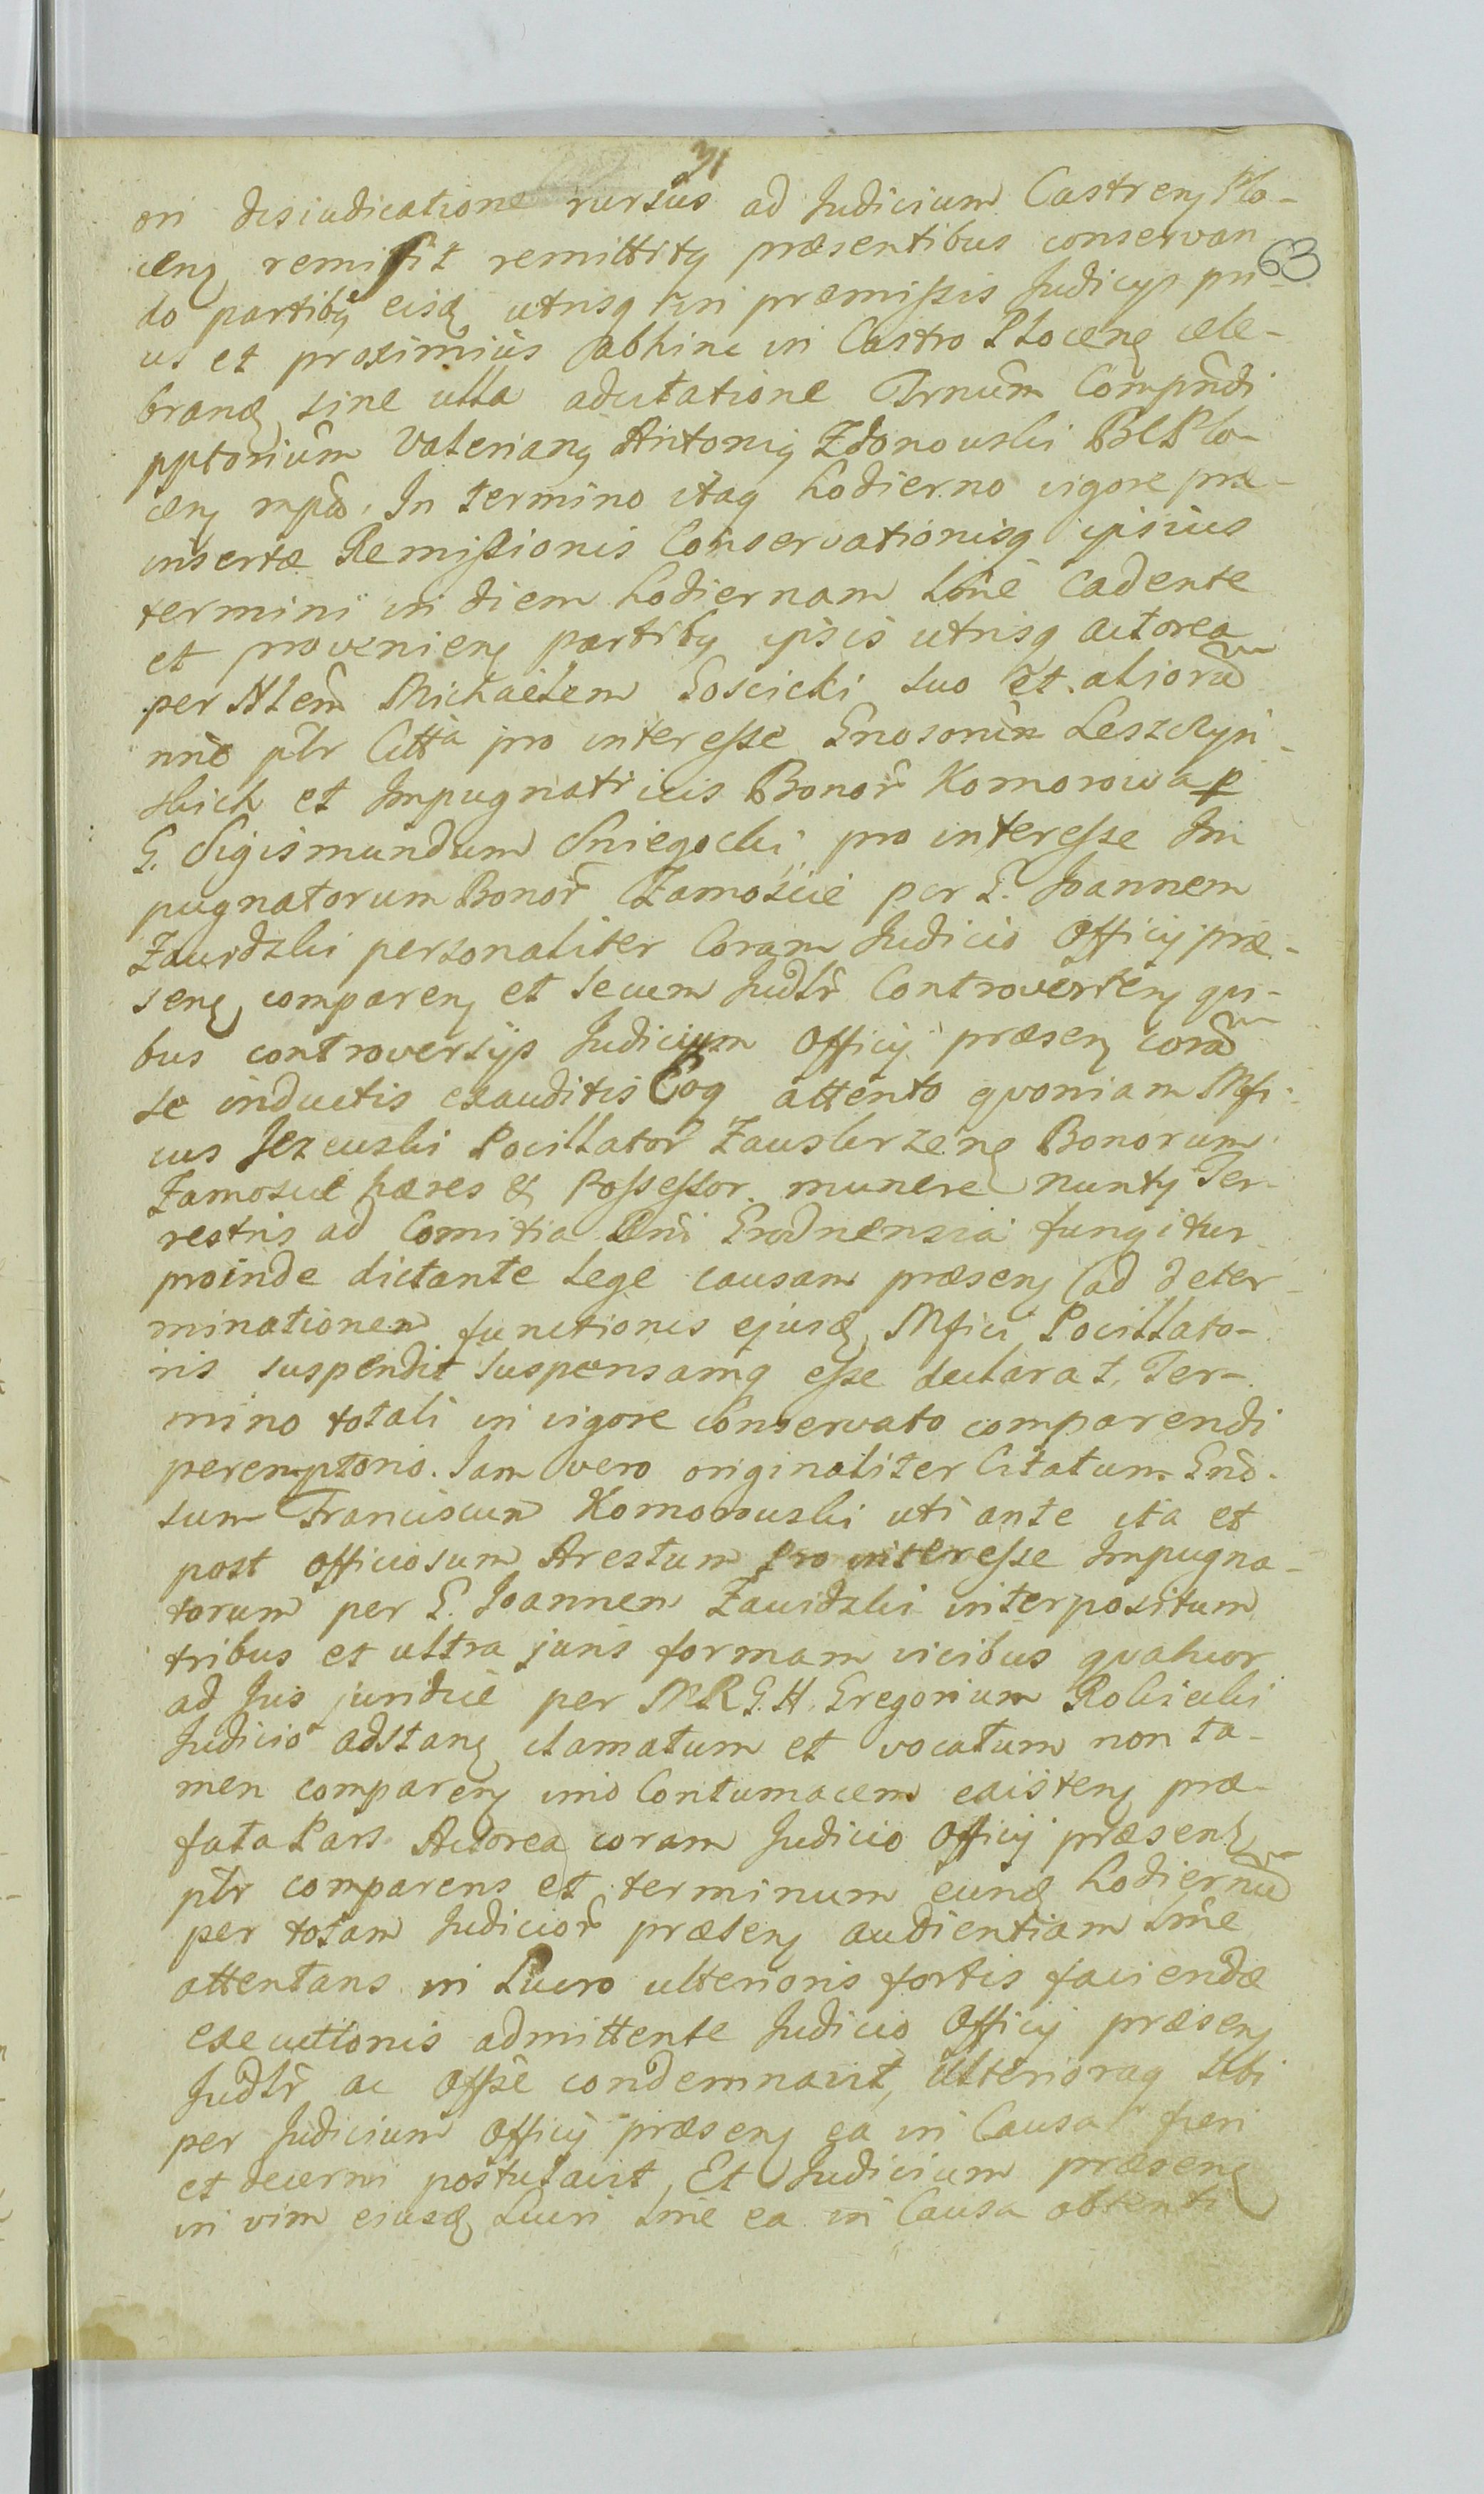 31
63
ori desiudicatione rursus ad Judicium Castrenȝ Plo-
cenȝ remisit remittitq præsentibus conservan
do partibȝ eisdȝ utrisq in præmissis Judicys pri-
us et proximius abhinc in Castro Plocenȝ cele-
brandȝ sine ulla adcitatione Trnum Compndi
pptorium Valerianȝ Antoniȝ Zdonowski BCPlo-
cenȝ mpa. In termino itaq hodierno vigore præ-
insertæ Remissionis Conservationisq ipsius
termini in diem hodiernam Lme cadente
et provenienȝ partibȝ ipsis utrisq actorea
per Nlem Michaelem Goscicki suo et aliorum
nne pltr Citta pro interesse Gnosorum Leszczyn-
skich et Impugnatricis Bonor Komorowa p
G. Sigismundum Sniegocki pro interesse Im
pugnatorum Bonor Zamoście per G. Joannem
Zawidzki personaliter Coram Judicio Officij præ-
senȝ comparenȝ et secum Judlr Controvertenȝ qui-
bus controversijs Judicium Officij præsenȝ coram
se inductis exauditis Eoq attento qvoniam Mfi-
cus Jezewski Pocillator Zawskrzenȝ Bonorum
Zamoscie hæres & Possessor munere nuntij Ter-
restris ad Comitia Rni Grodnensia fungitur
proinde dictante Lege causam præsenȝ ad deter-
minationem functionis ejusdȝ Mfici Pocillato-
ris suspendit suspensamq esse declarat, Ter-
mino totali in vigore conservato comparendi
peremptorio. Jam vero originaliter Citatum Gno-
sum Franciscum Komorowski uti ante ita et
post officiosum Arestum pro interesse Impugna-
torum per G. Joannem Zawidzki interpositum
tribus et ultra juris formam vicibus qvatuor
ad Jus juridice per MRG.H. Gregorium Rokicki
Judicio adstanȝ clamatum et vocatum non ta-
men comparenȝ imo Contumacem existenȝ præ-
fata Pars Actorea coram Judicio Officij præsenȝ
pltr comparens et terminum eundȝ hodiernum
per totam Judicior præsenȝ audientiam Lme
attentans in Lucro ulterioris fortis faciendæ
executionis admittente Judicio Officij præsenȝ
Judlr ac Offse condemnavit, ulterioraq sibi
per Judicium Officij præsenȝ ea in Causa fieri
et decerni postulavit, Et Judicium præsenȝ
in vim eiusdȝ Lucri Lme ea in Causa obtenti